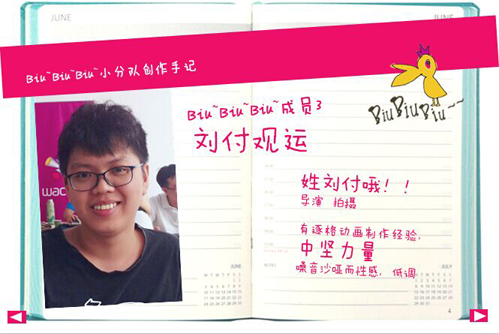 JUNE
JUNE
Biu~Biu~Biu~小分队创作手记
BiuBiuBiu~~
Biu~Biu~Biu~成员3
刘付观运
姓刘付哦！！
导演 拍摄
有逐格动画制作经验，
中坚力量
嗓音沙哑而性感，低调
wac
NOTES
JUNE
JULY
4